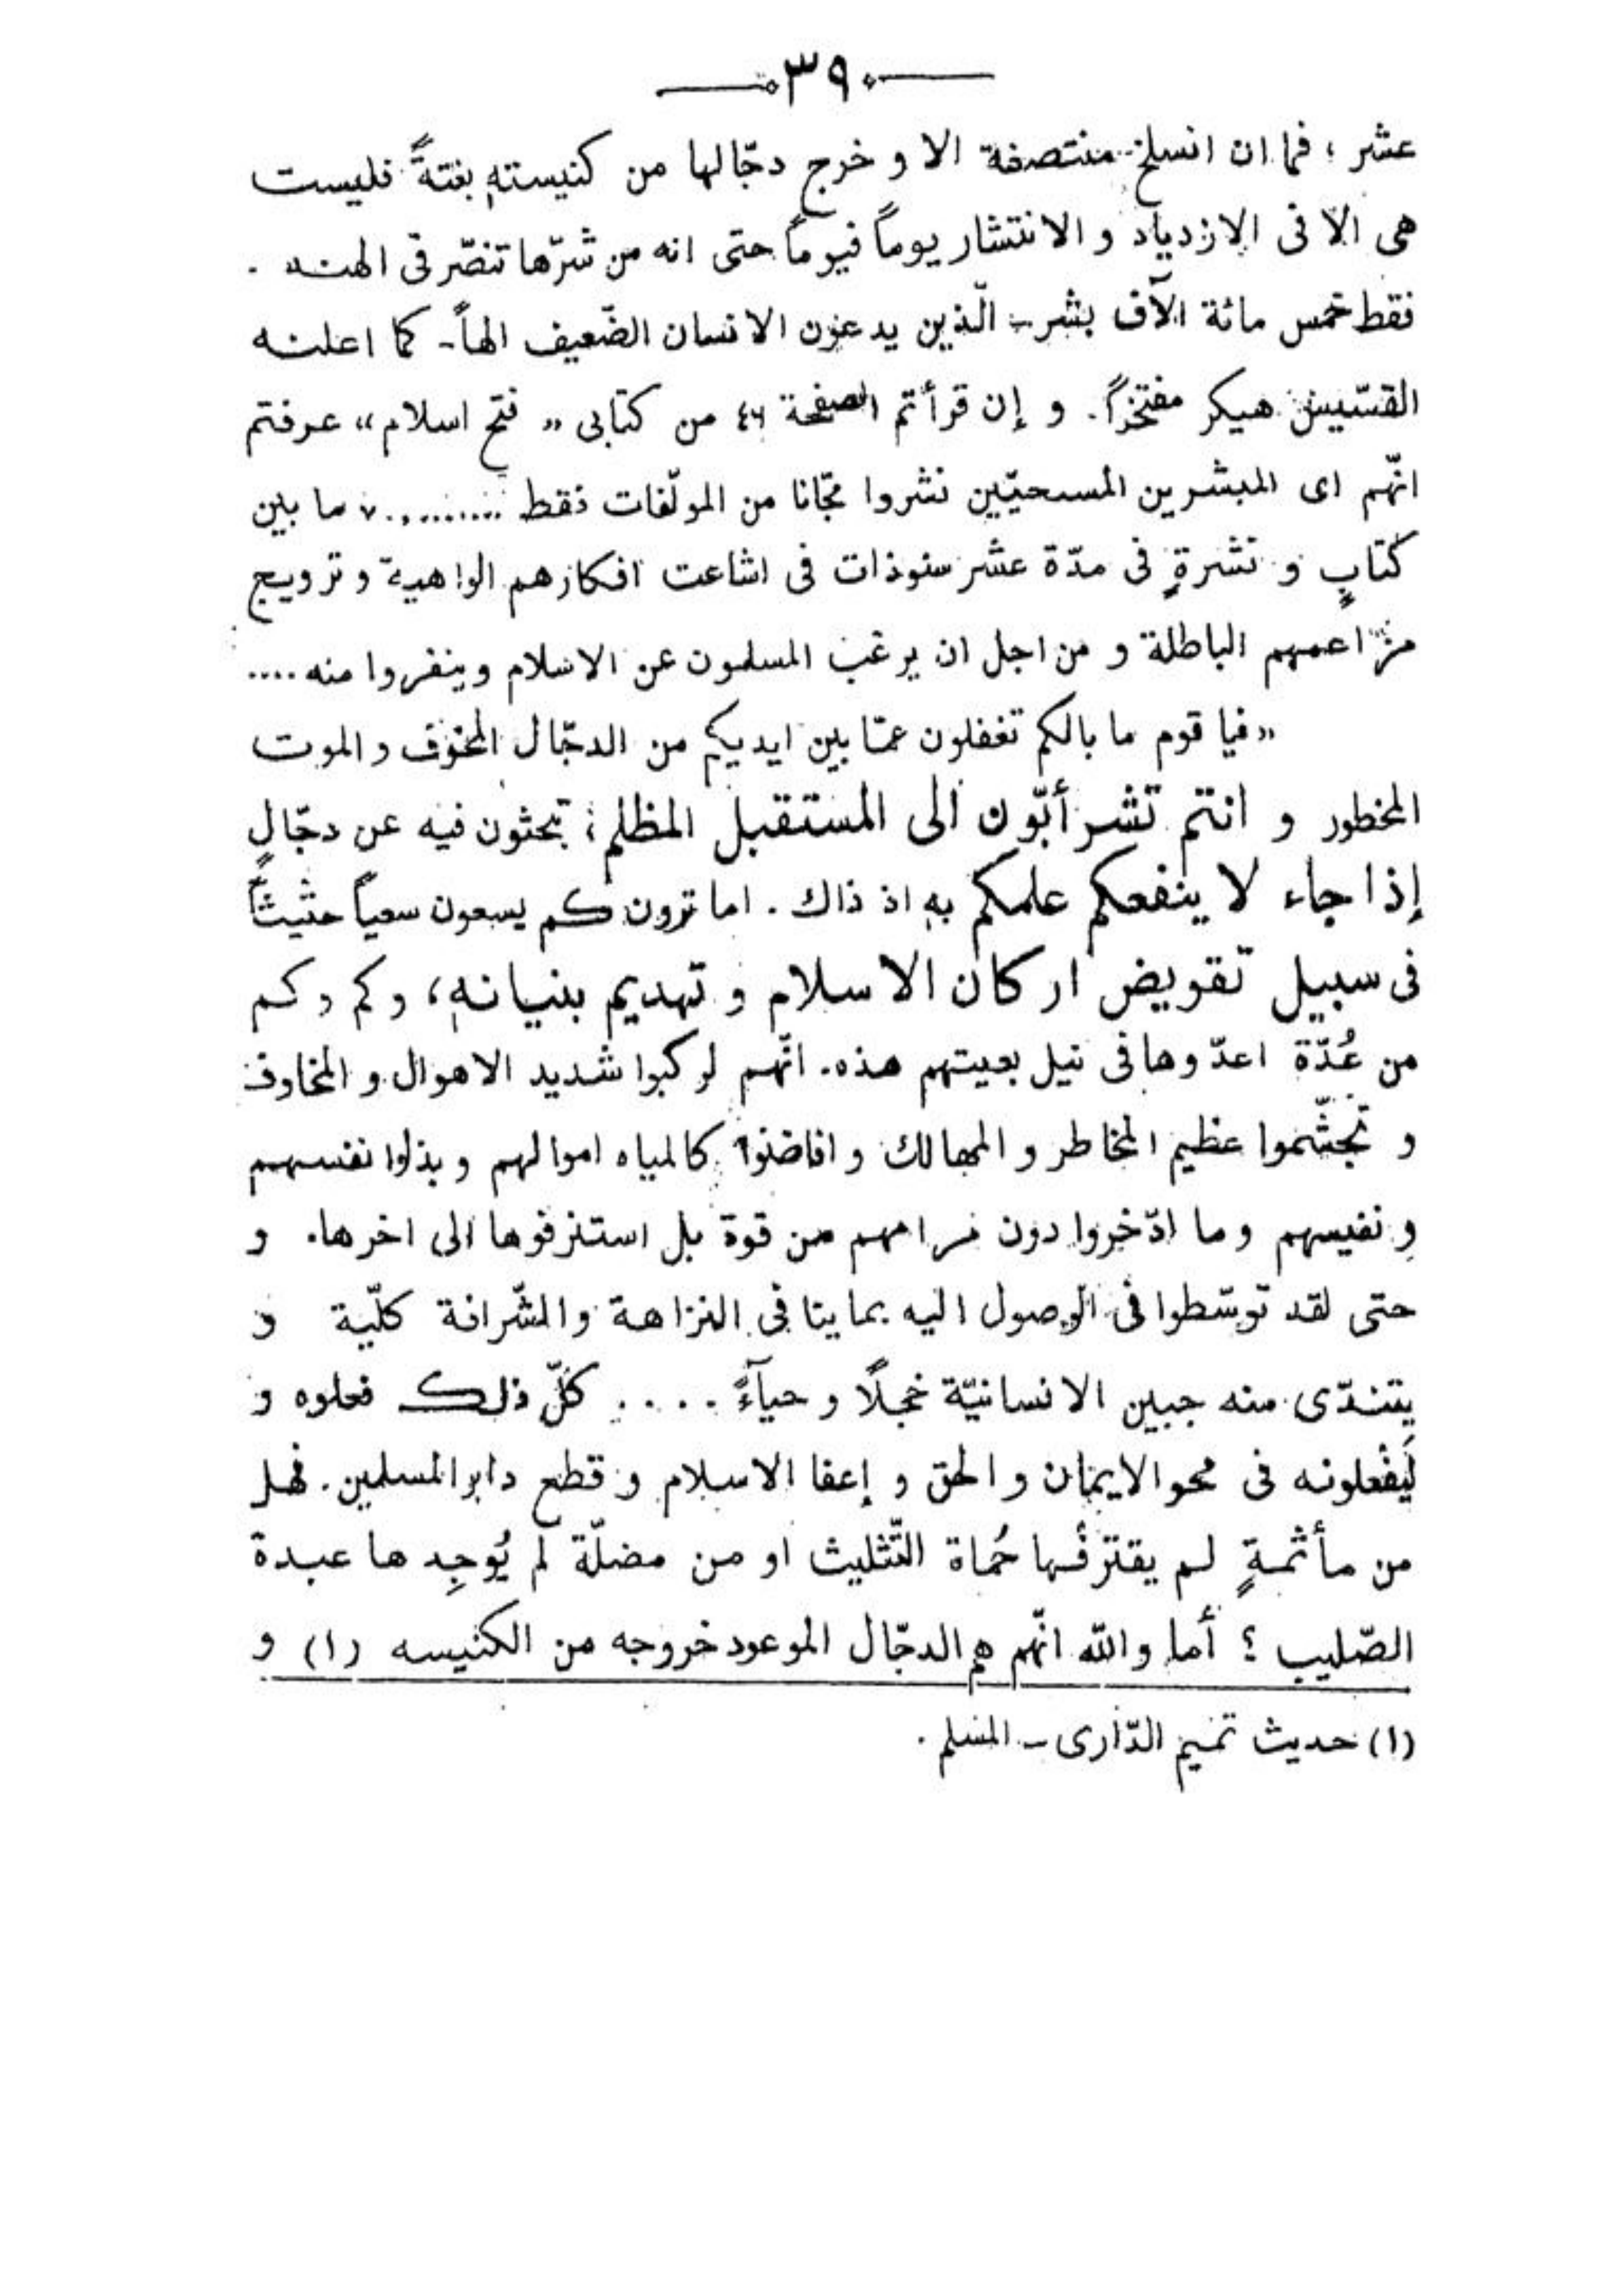 ۳۹۰
عشر ؛ فما ان انسلخ منتصفة الا و خرج دجّالها من كنيستهِ بغتةً فليست
هى الاّ فى الازدياد و الانتشار يوماً فيوماً حتى انه من شرّها تنصّر فى الهند .
فقط خمس مائة الآف بشر - الّذين يدعون الانسان الضّعيف الهاً - كما اعلنه
القسّيس هيكر مفتخراً . و إن قرأتم الصفحة ٤٦ من كتابى « فتح اسلام » عرفتم
انّهم اى المبشرين المسحيّين نشروا مجّانا من المولّفات فقط ما بين
كتابٍ و نشرةٍ فى مدّة عشر سنوذات فى اشاعت افكارهم الواهية و ترويج
مزاعمهم الباطلة و من اجل ان يرغب المسلمون عن الاسلام وينفروا منه ....
« فيا قوم ما بالكم تغفلون عمّا بين ايديكم من الدجّال المخوّف و الموت
المخطور و انتم تشرأبّون الى المستقبل المظلم ؛ تبحثون فيه عن دجّالٍ
إذا جاء لا ينفعكم علمكم بهِ اذ ذاك . اما ترون كم يسعون سعياً حثيثاً
فى سبيل تقويض اركان الاسلام و تهديم بنيانهِ ، و كم و كم
من عُدّة اعدّوها فى نيل بعيتهم هذه . انّهم لركبوا شديد الاهوال و المخاوف
و تجشّموا عظيم المخاطر و المهالك و افاضوا كالمياه اموالهم و بذلوا نفسهم
و نفيسهم و ما ادّخروا دون مرامهم من قوة بل استنزفوها الى اخرها . و
حتى لقد توسّطوا فى الوصول اليه بما ينافى النزاهة والشّرافة كلّية و
يتندّى منه جبين الانسانيّة خجلًا و حيآءً .... كلّ ذلك فعلوه و
لَيفعلونه فى محو الايمان و الحق و إعفا الاسلام و قطع دابر المسلمين . فهل
من مأثمةٍ لم يقترفها حُماة التّثليث او من مضلّة لم يُوجِدها عبدة
الصّليب ؟ أما والله انّهم هم الدجّال الموعود خروجه من الكنيسه (١) و
(١) حديث تميم الدّارى - المسلم .